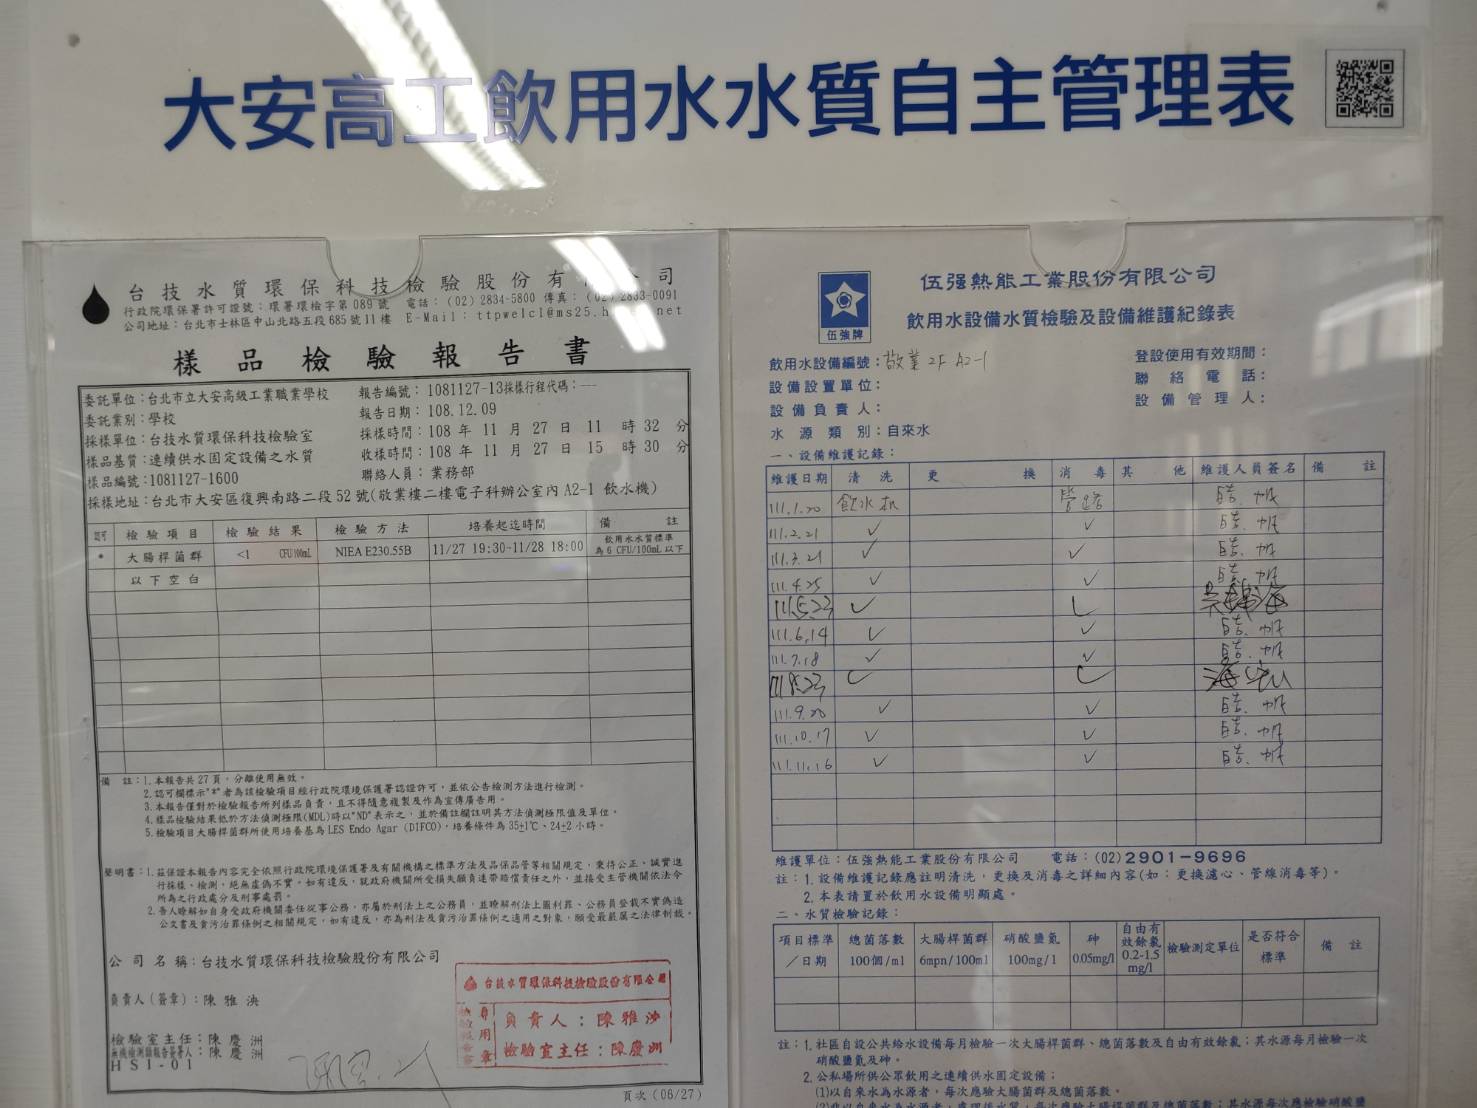 大安高工飲用水水質自主管理表
台技水質環保科技檢驗股份有 公司
行政院環保署許可證號：環署環檢字第089號 電話：(02)2834-5800 傳真：(02)2833-0091
公司地址：台北市士林區中山北路五段685號11樓 E-Mail：ttpwelcl@ms25.h net
樣品檢驗報告書
委託單位：台北市立大安高級工業職業學校 報告編號：1081127-13採樣行程代碼：---
委託業別：學校 報告日期：108.12.09
採樣單位：台技水質環保科技檢驗室 採樣時間：108 年 11 月 27 日 11 時 32 分
樣品基質：連續供水固定設備之水質 收樣時間：108 年 11 月 27 日 15 時 30 分
樣品編號：1081127-1600 聯絡人員：業務部
採樣地址：台北市大安區復興南路二段52號(敬業樓二樓電子科辦公室內A2-1 飲水機)
認可 檢驗項目 檢驗結果 檢驗方法 培養起迄時間 備註
* 大腸桿菌群 <1 CFU/100mL NIEA E230.55B 11/27 19:30-11/28 18:00 飲用水水質標準為6 CFU/100mL以下
以下空白
備 註：1.本報告共27頁，分離使用無效。
2.認可欄標示"*"者為該檢驗項目經行政院環境保護署認證許可，並依公告檢測方法進行檢測。
3.本報告僅對於檢驗報告所列樣品負責，且不得隨意複製及作為宣傳廣告用。
4.樣品檢驗結果低於方法偵測極限(MDL)時以"ND"表示之，並於備註欄註明其方法偵測極限值及單位。
5.檢驗項目大腸桿菌群所使用培養基為LES Endo Agar (DIFCO)，培養條件為35±1℃、24±2小時。
聲明書：1.茲保證本報告內容完全依照行政院環境保護署及有關機構之標準方法及品保品管等相關規定，秉持公正、誠實進
行採樣、檢測，絕無虛偽不實，如有違反，就政府機關所受損失願負連帶賠償責任之外，並接受主管機關依法令
所為之行政處分及刑事處罰。
2.吾人瞭解如自身受政府機關委任從事公務，亦屬於刑法上之公務員，並瞭解刑法上圖利罪、公務員登載不實偽造
公文書及貪污治罪條例之相關規定，如有違反，亦為刑法及貪污治罪條例之適用之對象，願受最嚴厲之法律制裁。
公司名稱：台技水質環保科技檢驗股份有限公司
負責人(簽章)：陳雅泱
檢驗室主任：陳慶洲
無機檢測類報告簽署人：陳慶洲
HSI-01
台技水質環保科技檢驗股份有限公司
檢驗報告書專用章
負責人：陳雅泱
檢驗室主任：陳慶洲
頁次(06/27)
伍強牌
伍强熱能工業股份有限公司
飲用水設備水質檢驗及設備維護紀錄表
飲用水設備編號：敬業2F A2-1 登設使用有效期間：
設備設置單位： 聯絡電話：
設備負責人： 設備管理人：
水源類別：自來水
一、設備維護記錄：
維護日期 清洗 更換 消毒 其他 維護人員簽名 備註
111.1.20 飲水机 管路
111.2.21 ✓ ✓
111.3.21 ✓ ✓
111.4.25 ✓ ✓
111.5.23 ✓ ✓
111.6.14 ✓ ✓
111.7.18 ✓ ✓
111.8.23 ✓ ✓
111.9.20 ✓ ✓
111.10.17 ✓ ✓
111.11.16 ✓ ✓
維護單位：伍强熱能工業股份有限公司 電話：(02)2901-9696
註：1.設備維護記錄應註明清洗，更換及消毒之詳細內容(如：更換濾心、管線消毒等)。
2.本表請置於飲用水設備明顯處。
二、水質檢驗記錄：
項目標準／日期 總菌落數100個/ml 大腸桿菌群6mpn/100ml 硝酸鹽氮100mg/1 砷0.05mg/l 自由有效餘氯0.2-1.5mg/l 檢驗測定單位 是否符合標準 備註
註：1.社區自設公共給水設備每月檢驗一次大腸桿菌群、總菌落數及自由有效餘氯；其水源每月檢驗一次
硝酸鹽氮及砷。
2.公私場所供公眾飲用之連續供水固定設備：
(1)以自來水為水源者，每次應驗大腸菌群及總菌落數。